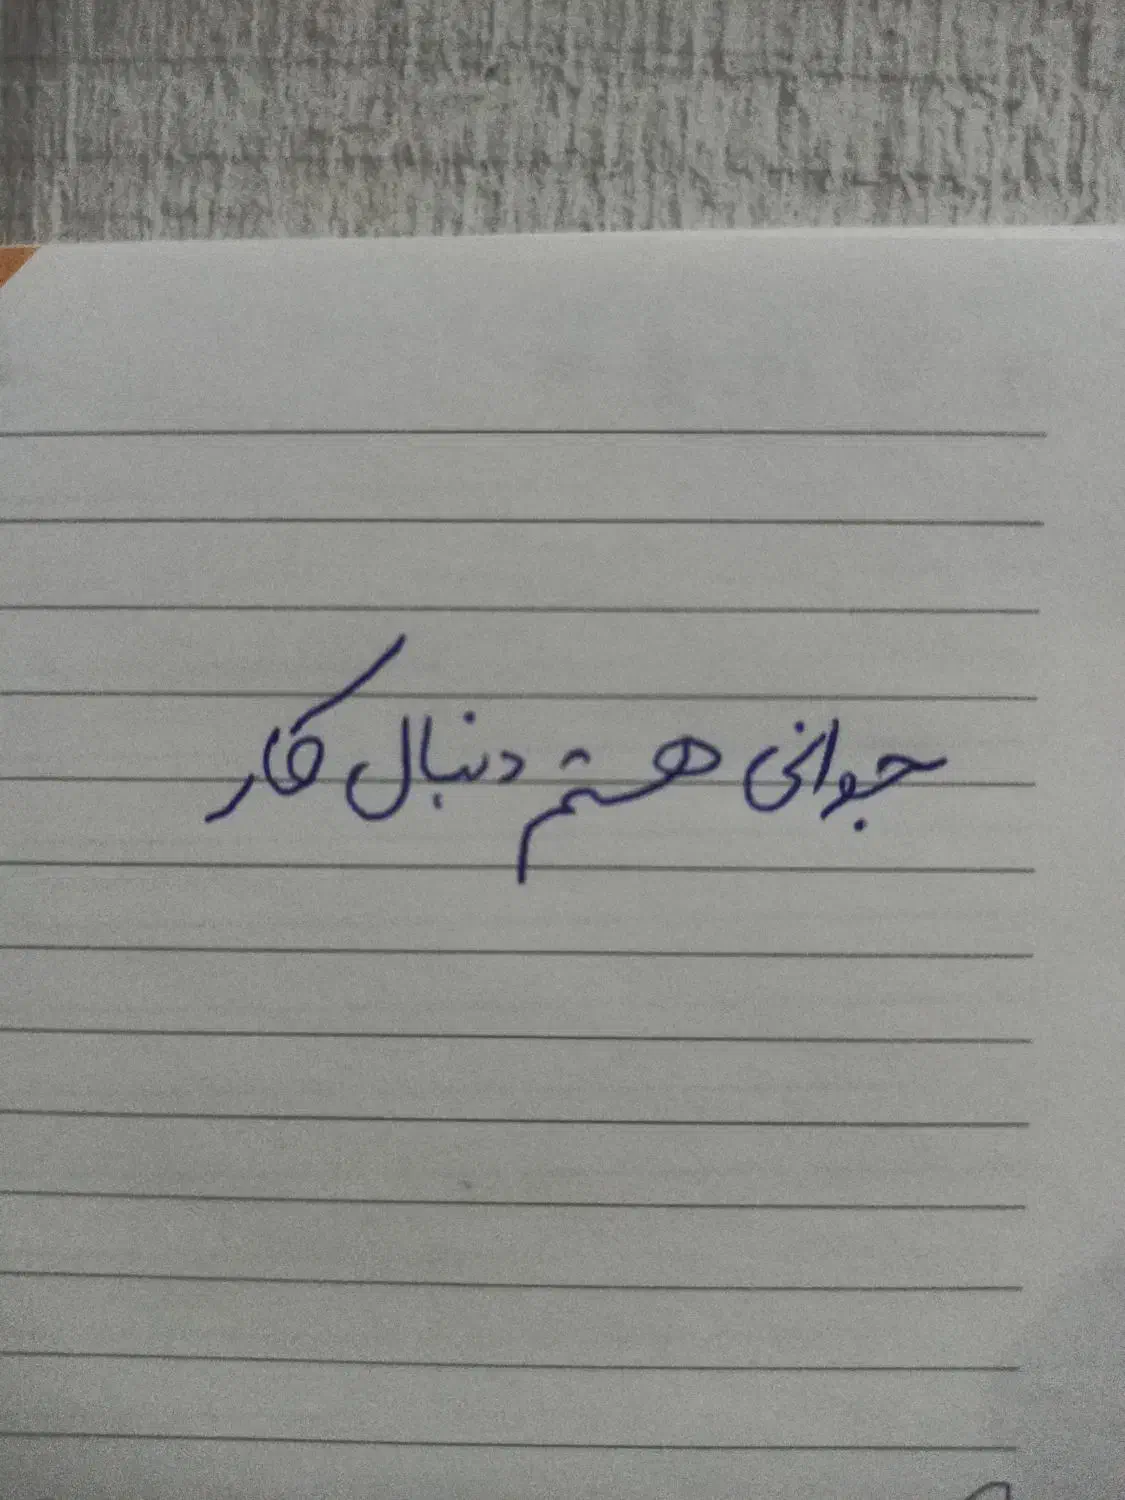 جوانی هستم دنبال کار